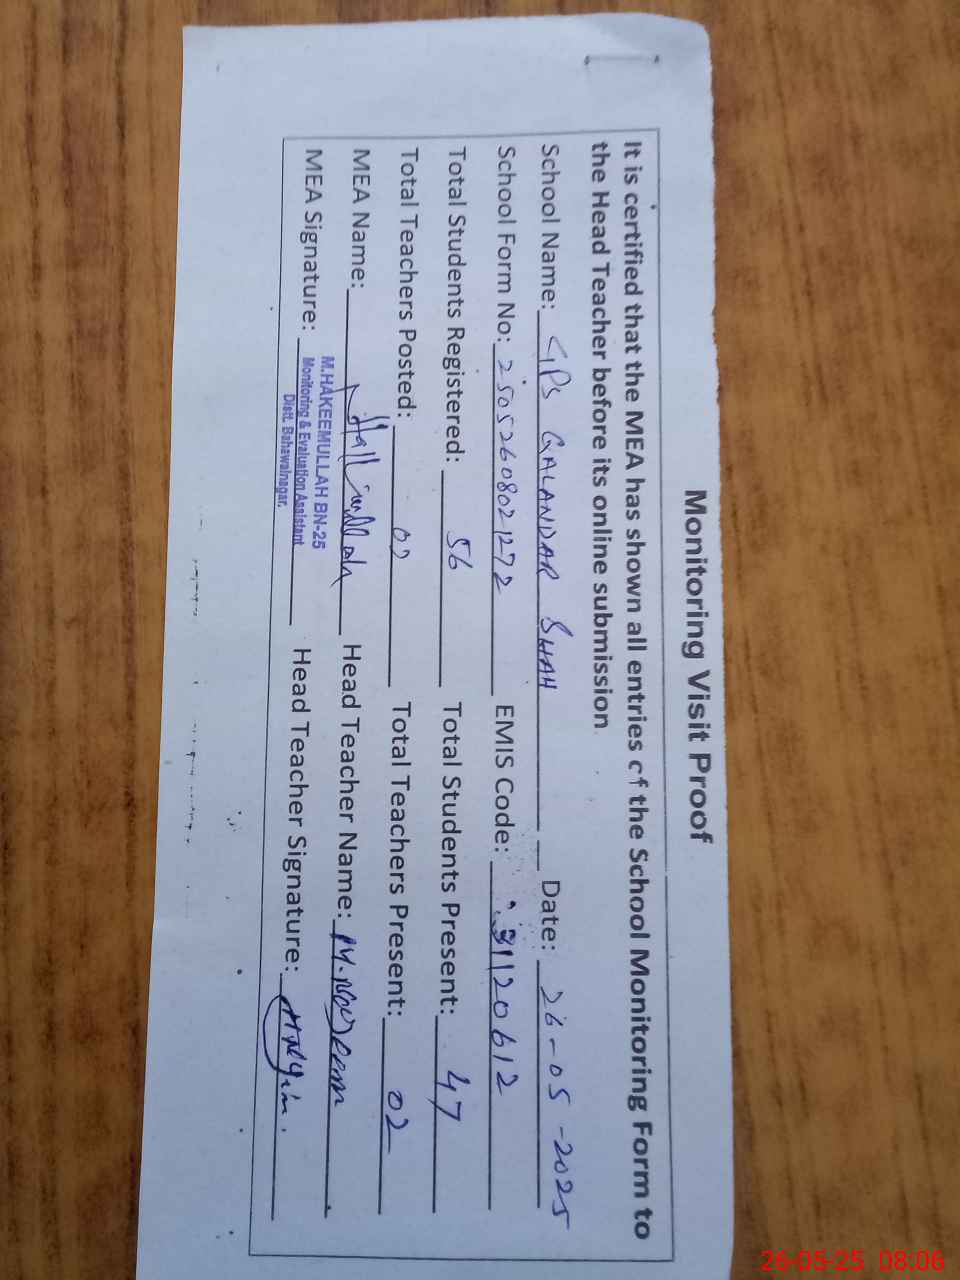 Monitoring Visit Proof
It is certified that the MEA has shown all entries of the School Monitoring Form to
the Head Teacher before its online submission
School Name: GPS QALANDAR SHAH Date: 26-05-2025
School Form No: 25052608021272 EMIS Code: 31120612
Total Students Registered: 56 Total Students Present: 47
Total Teachers Posted: 02 Total Teachers Present: 02
MEA Name: Head Teacher Name: M.
MEA Signature: Head Teacher Signature:
M.HAKEEMULLAH BN-25
Monitoring & Evaluation Assistant
Distt. Bahawalnagar.
26-05-25 08:06